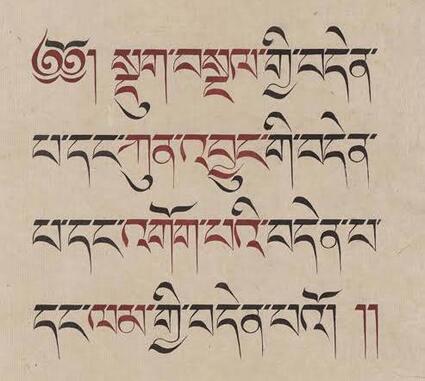 ༄༅། སྡུག་བསྔལ་གྱི་བདེན་
པ་དང་ཀུན་འབྱུང་གི་བདེན་
པ་དང་འགོག་པའི་བདེན་པ་
དང་ལམ་གྱི་བདེན་པའོ། །།